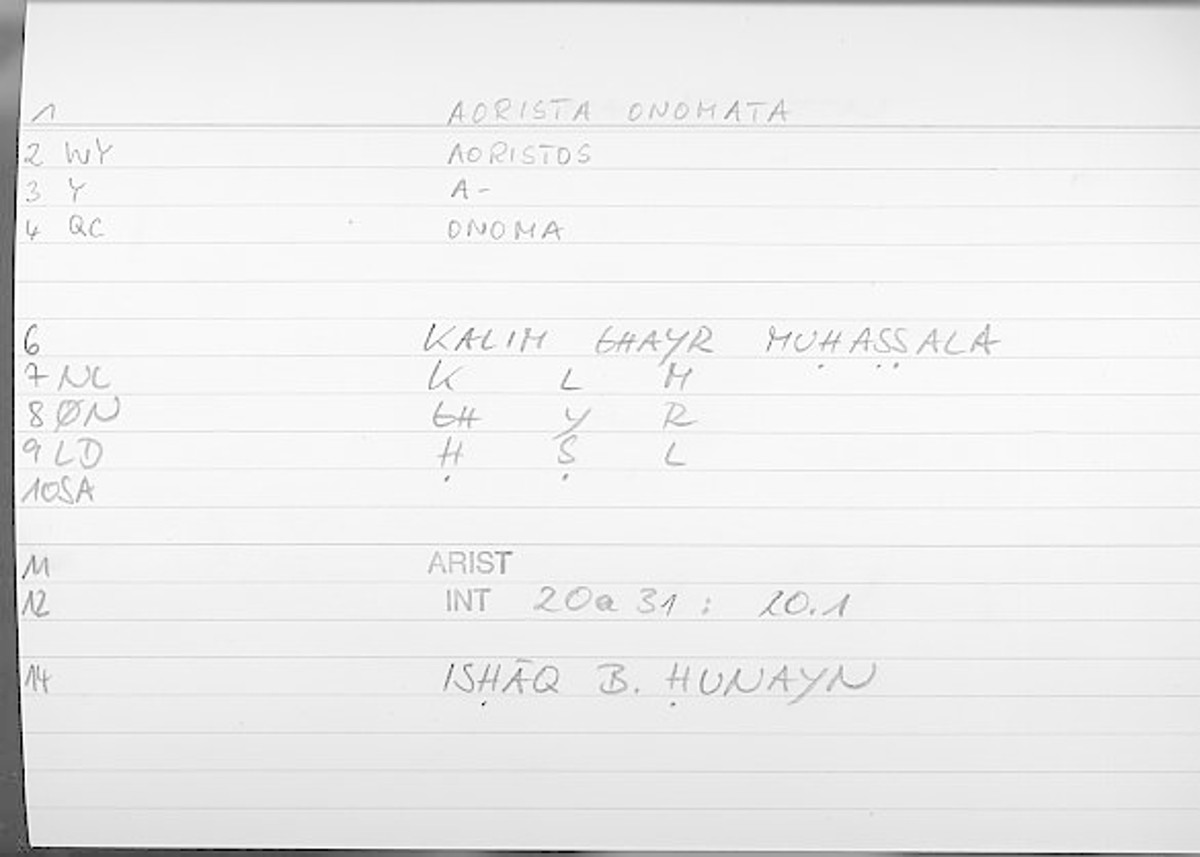 1 AORISTA ONOMATA
2 WY AORISTOS
3 Y A-
4 QC ONOMA
6 KALIM GHAYR MUḤAṢṢALA
7 NC K L M
8 ØN GH Y R
9 LD Ḥ Ṣ L
10SA
11 ARIST
12 INT 20a 31 : 20.1
14 ISḤĀQ B. ḤUNAYN